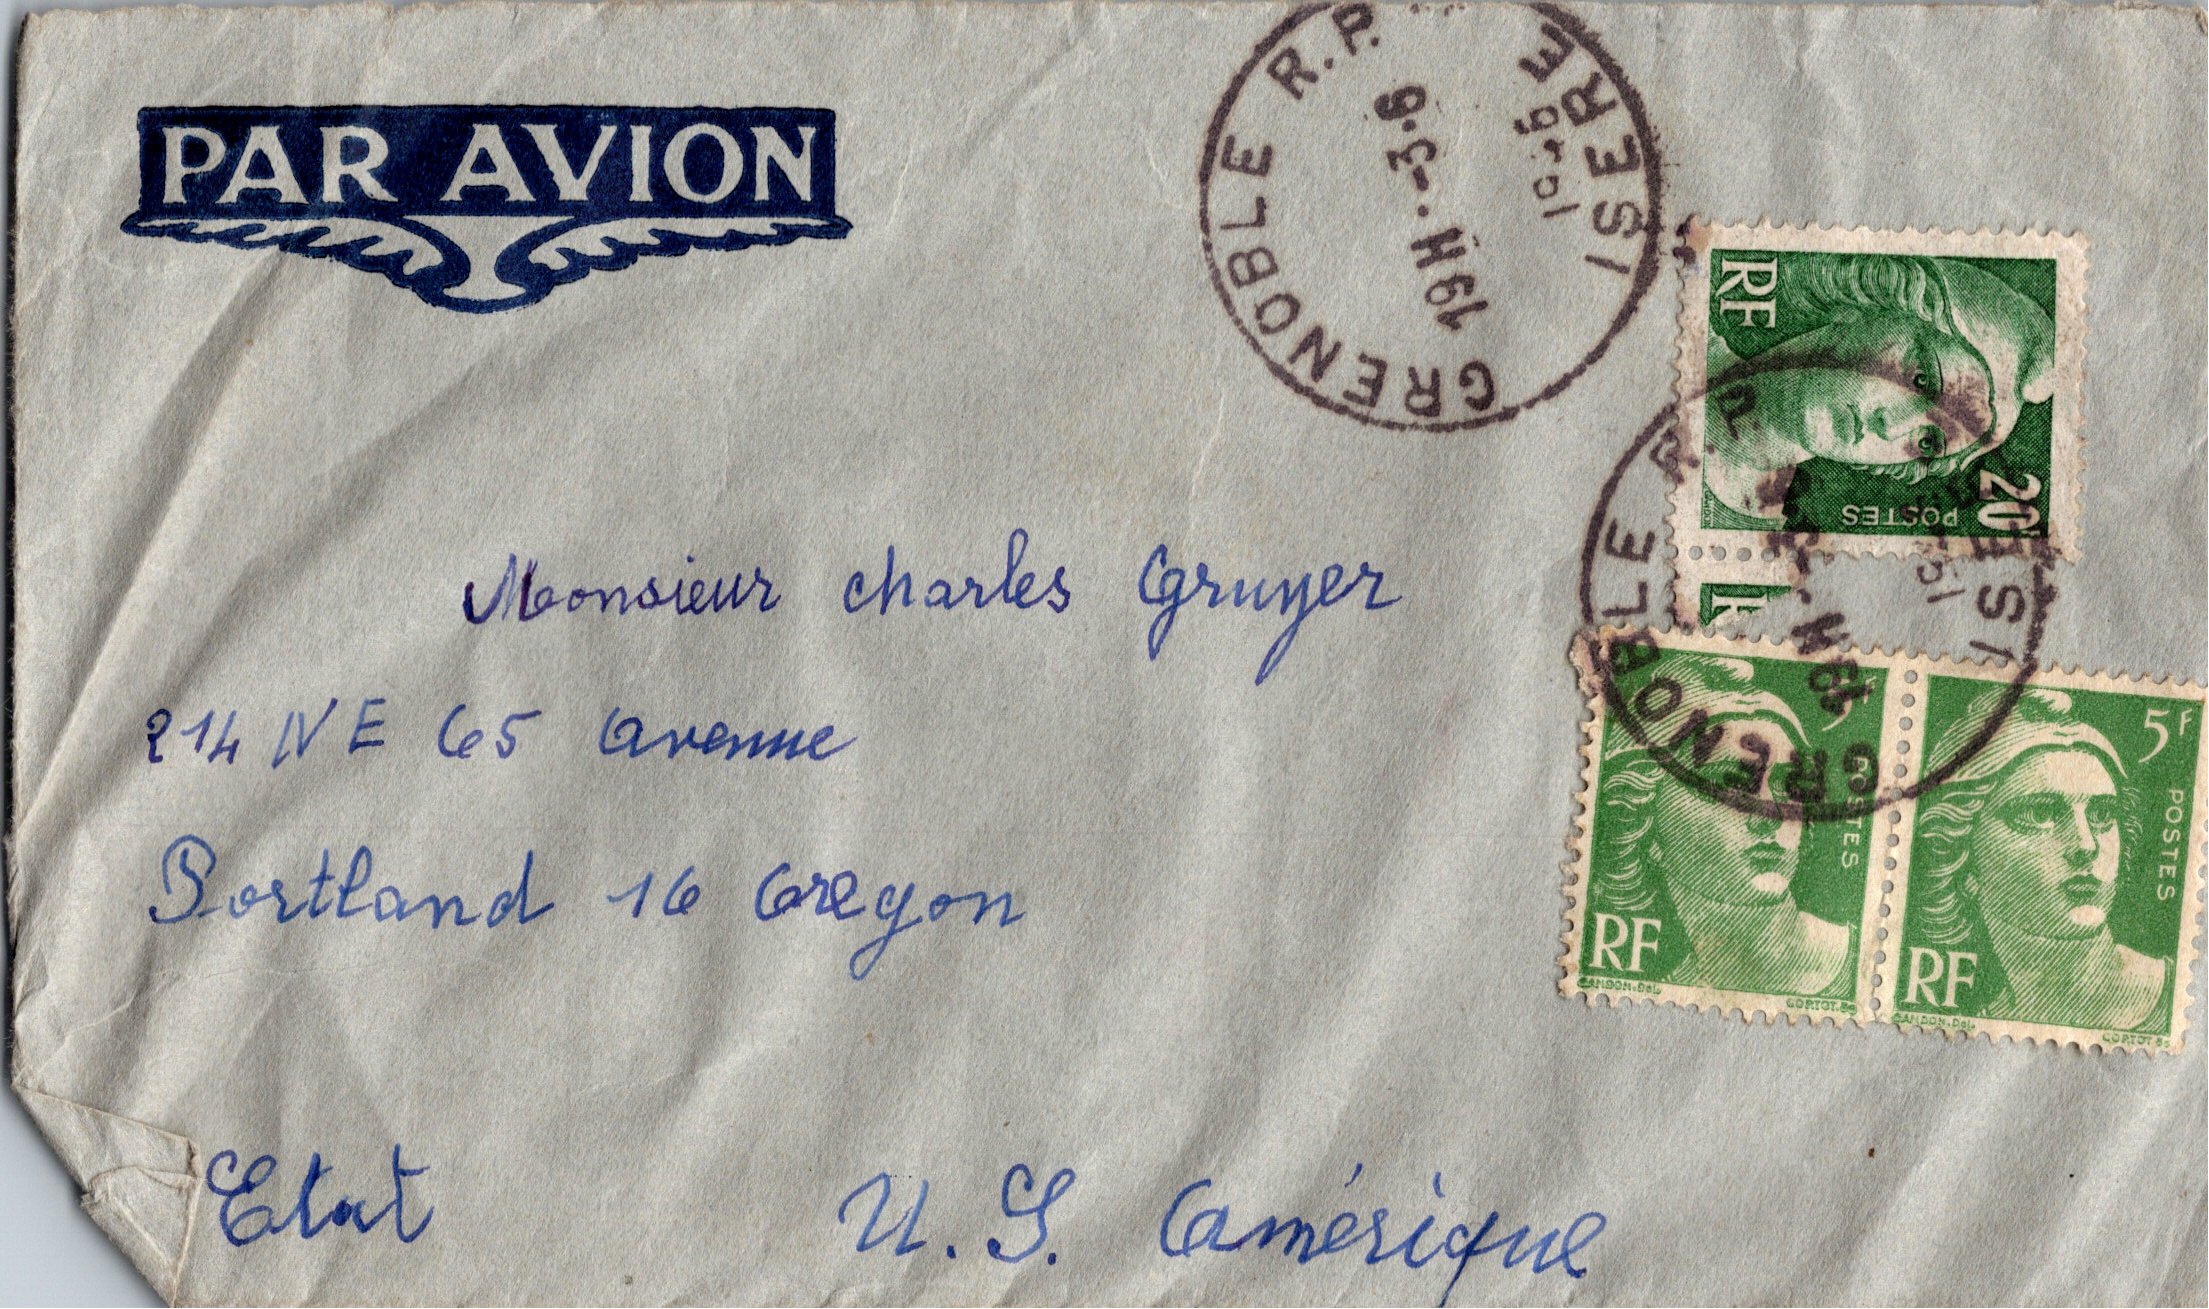 PAR AVION
GRENOBLE R.P.
ISERE
19H -3-6
RF
POSTES
20F
GRENOBLE R.P.
19H
Monsieur charles Gruyer
214 NE 65 Avenue
Portland 16 Oregon
Etat U.S. Amérique
5F
POSTES
RF
GANDON.Del.
CORTOT.Sc
5F
POSTES
RF
GANDON.Del.
CORTOT.Sc